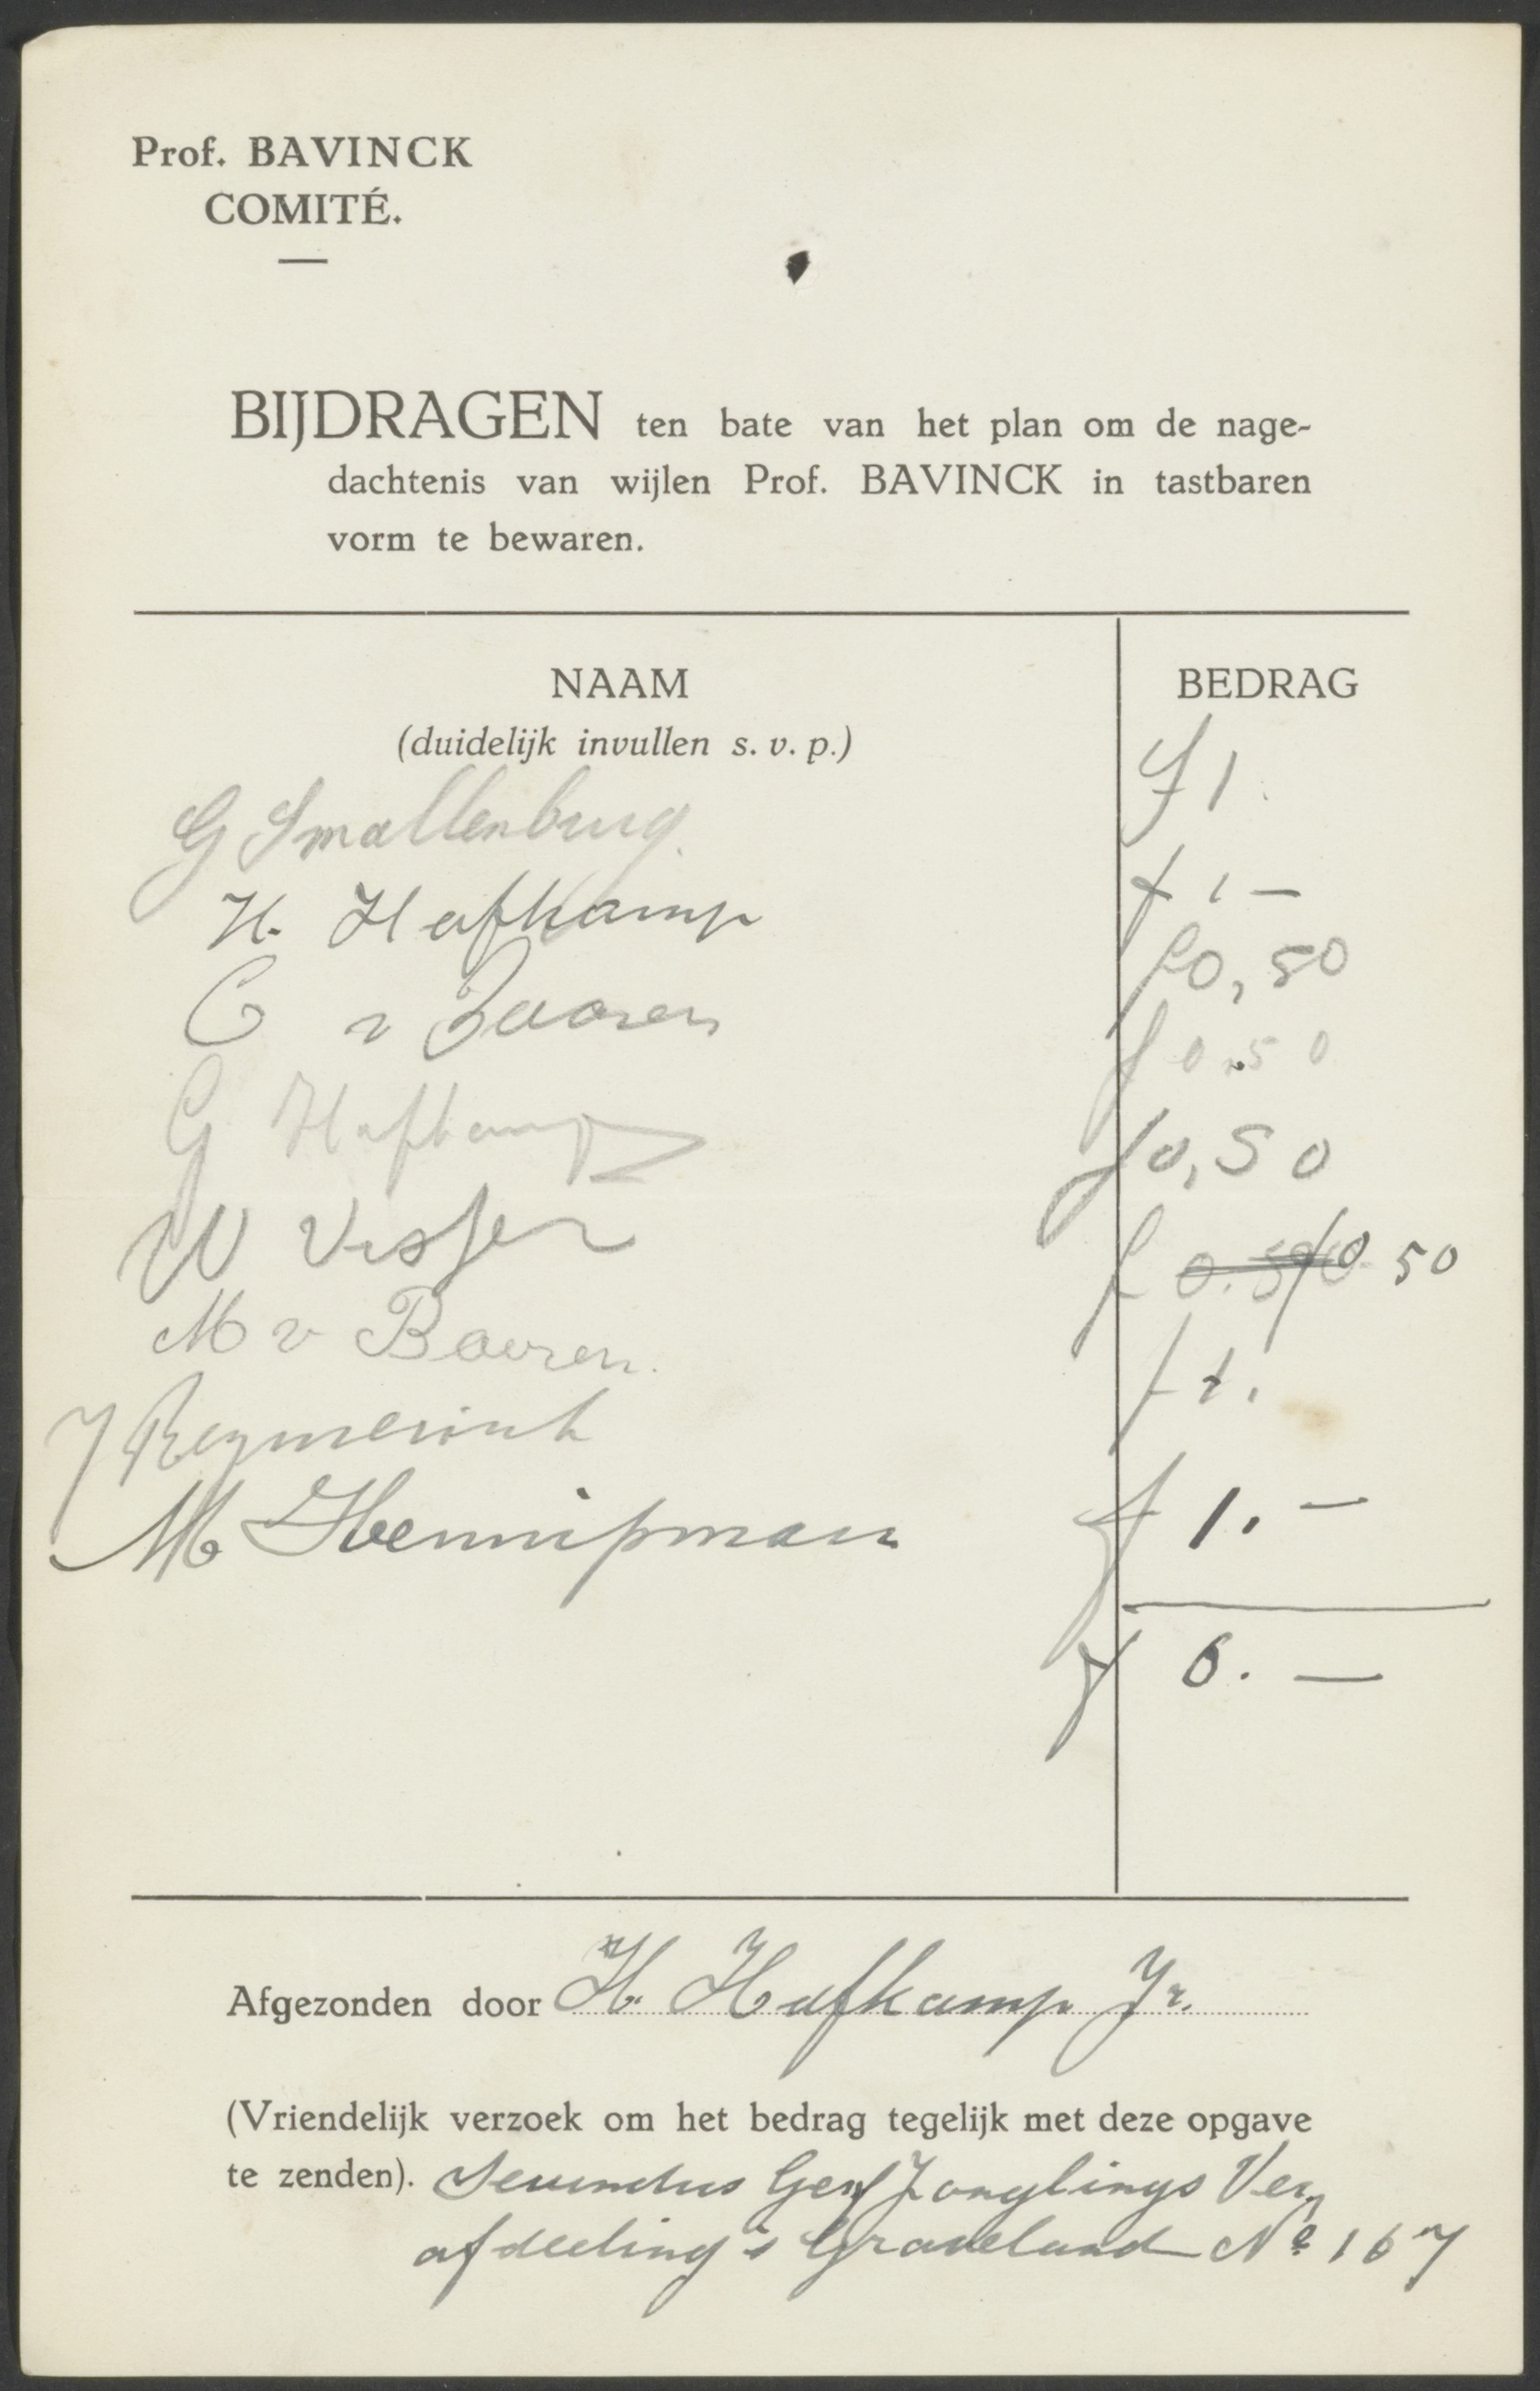 Prof. BAVINCK
COMITÉ.
BIJDRAGEN ten bate van het plan om de nage-
dachtenis van wijlen Prof. BAVINCK in tastbaren
vorm te bewaren.
NAAM BEDRAG
(duidelijk invullen s. v. p.)
G Smallenburg. f 1.
H. Hafkamp f 1 —
C v Baaren f 0,50
G Hafkamp f 0.50
W Visser f 0,50
M v Baaren. f 0.50 f 0 50
J Reymerink f 1.
M Hennipman f 1. —
f 6. —
Afgezonden door H. Hafkamp Jr.
(Vriendelijk verzoek om het bedrag tegelijk met deze opgave
te zenden). Geref Jonglings Ver,
afdeeling 's Graveland No 167